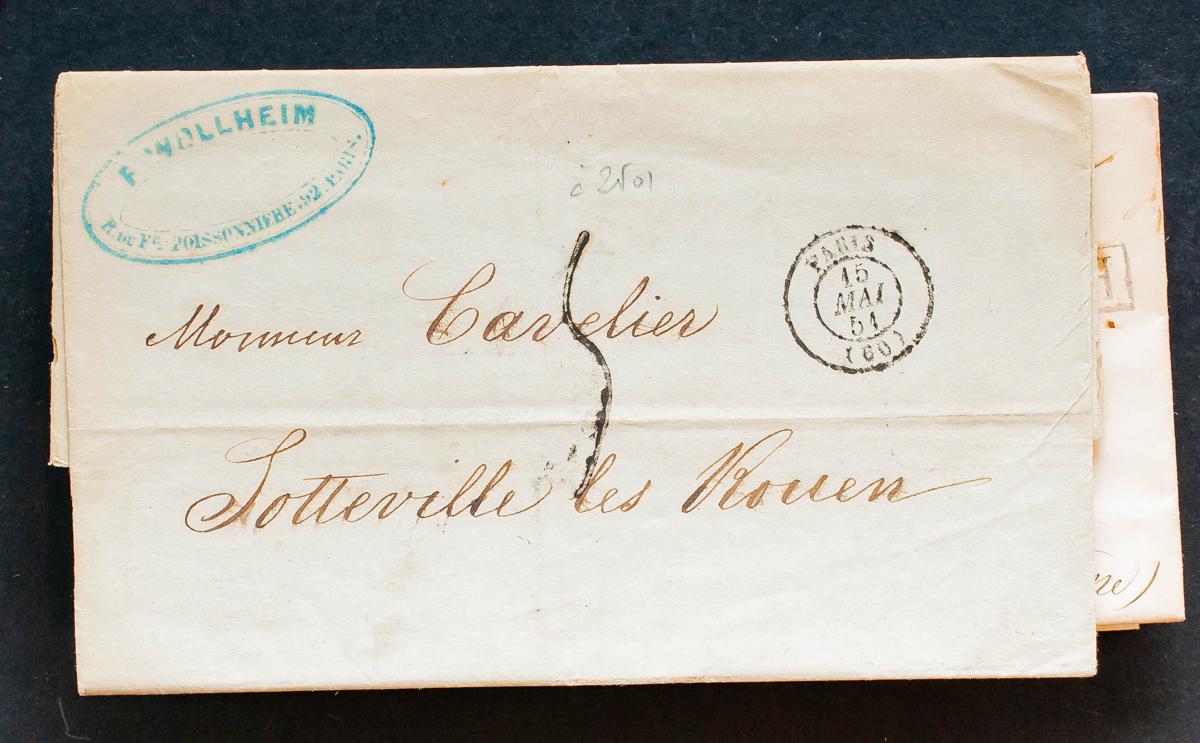 F. WOLLHEIM
R. DU Fg. POISSONNIERE. 92. PARIS.
PARIS
15
MAI
51
(60)
Monsieur Cavelier
Sotteville les Rouen